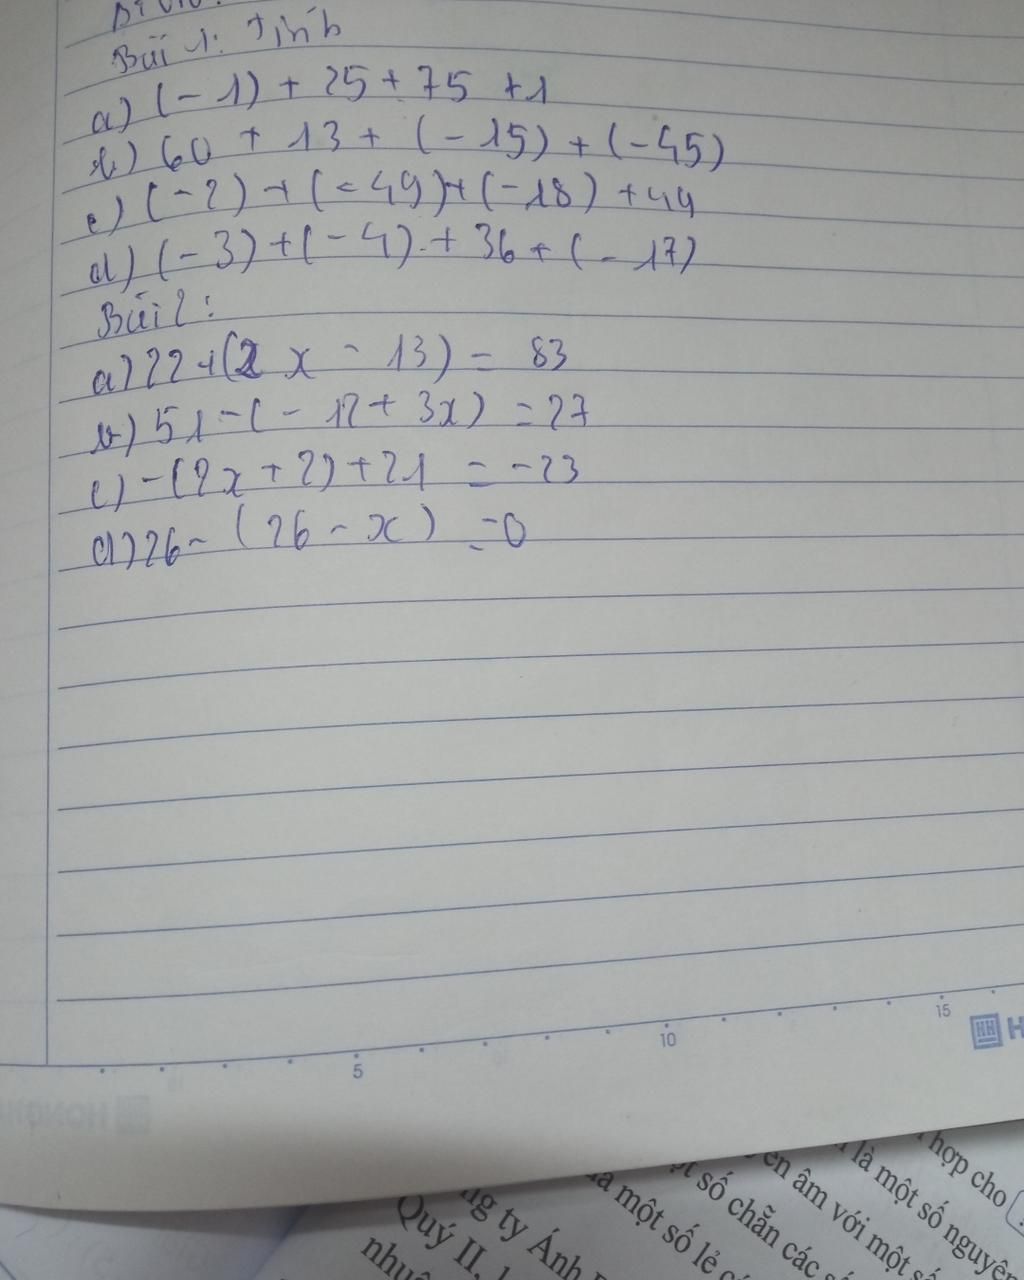 Bài 1: Tính
a) (-1) + 25 + 75 + 1
b) 60 + 13 + (-15) + (-45)
c) (-2) + (-49) + (-18) + 49
d) (-3) + (-4) + 36 + (-17)
Bài 2:
a) 22 + (2x - 13) = 83
b) 51 - (-12 + 3x) = 27
c) -(2x + 2) + 21 = -23
d) 26 - (26 - x) = 0
5
10
15
HH H
hợp cho
là một số nguyên
ên âm với một số
ột số chẵn các số
là một số lẻ
ng ty Ánh
Quý II,
nhuậ